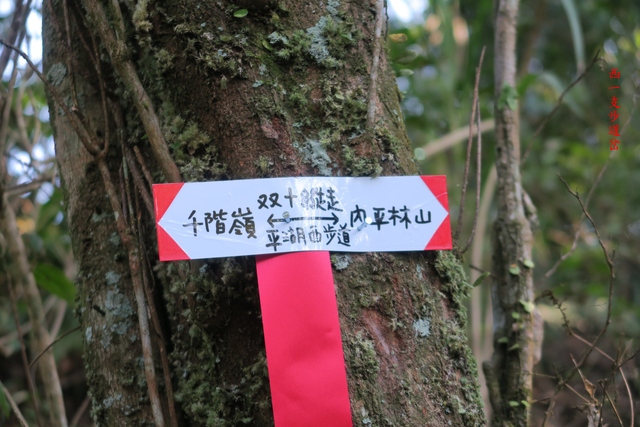 双十縱走
千階嶺 ←→ 內平林山
平湖西步道